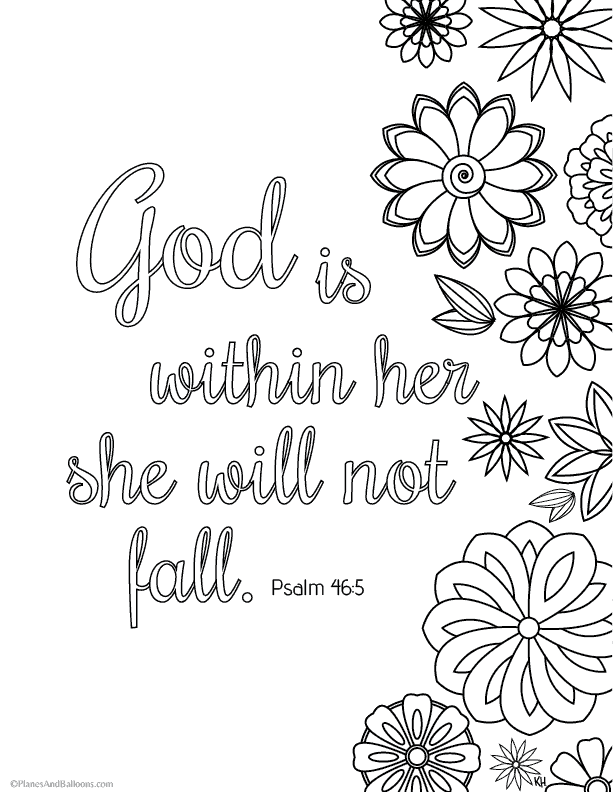 God is
within her
she will not
fall. Psalm 46:5
KH
©PlanesAndBalloons.com